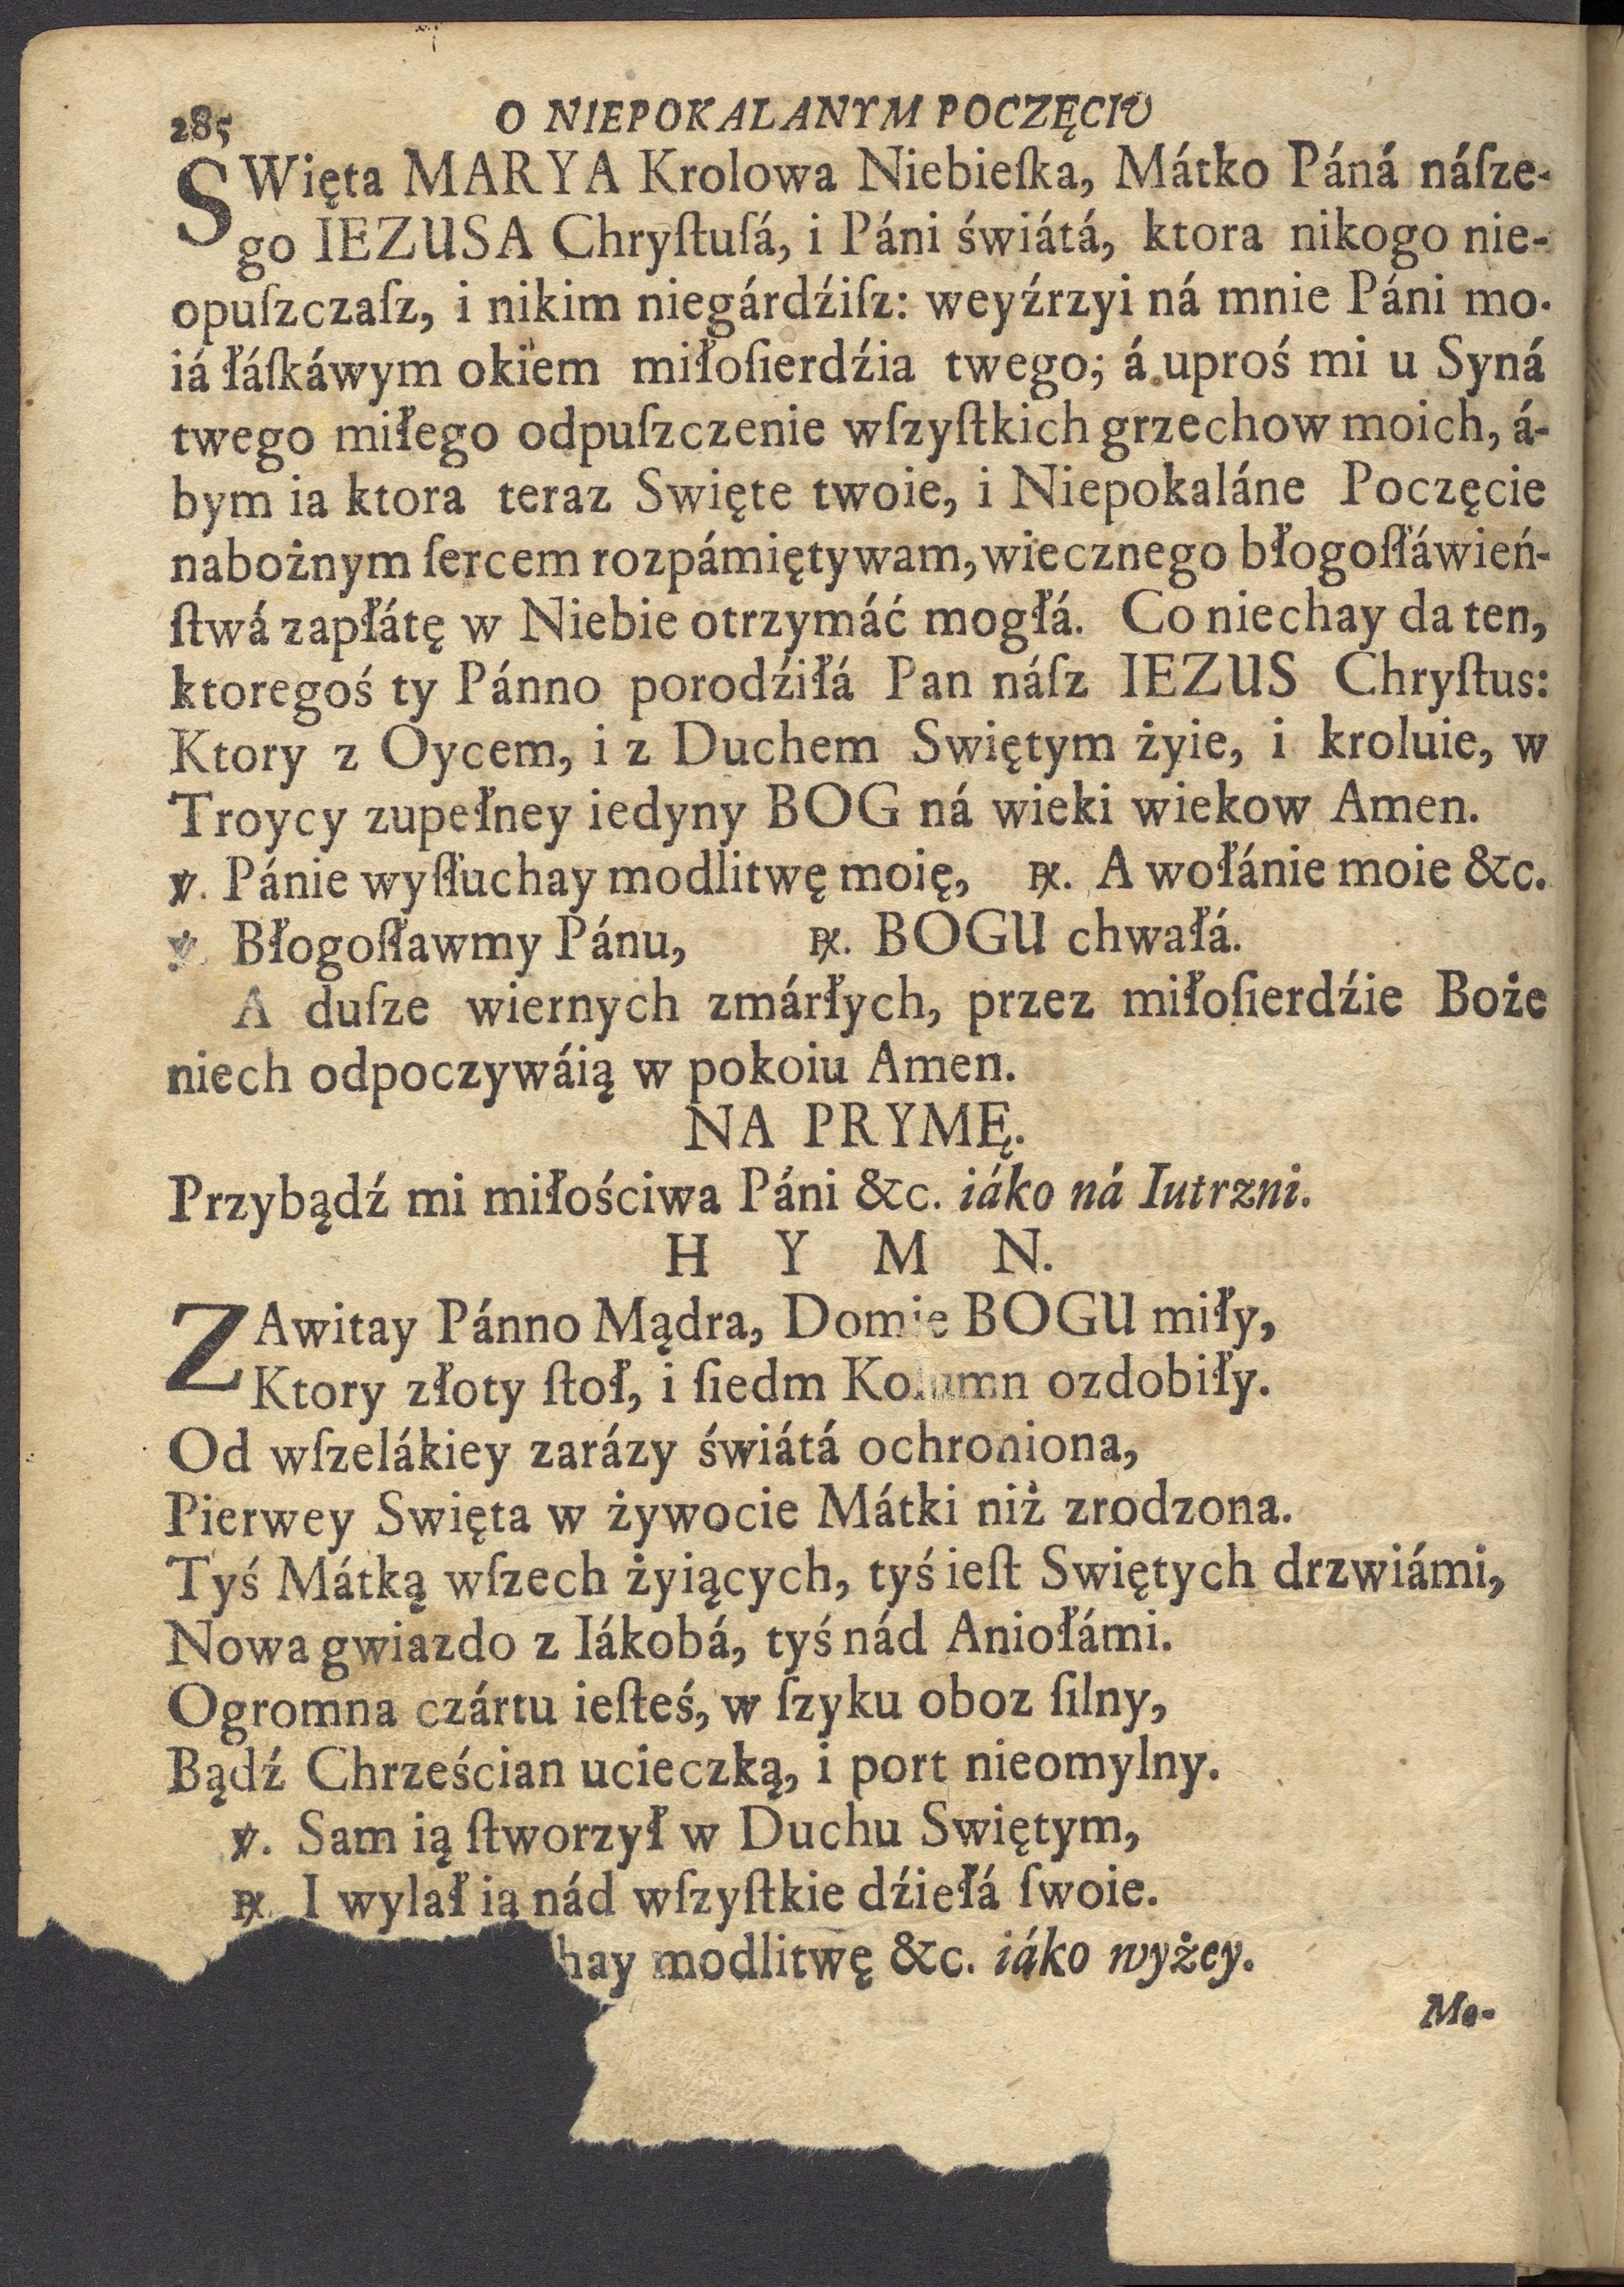 285
O NIEPOKALANYM POCZĘCIU
SWięta MARYA Krolowa Niebieſka, Mátko Páná náſze-
go IEZUSA Chryſtuſá, i Páni świátá, ktora nikogo nie-
opuſzczaſz, i nikim niegárdźiſz: weyźrzyi ná mnie Páni mo-
iá łáſkáwym okiem miłoſierdźia twego; á uproś mi u Syná
twego miłego odpuſzczenie wſzyſtkich grzechow moich, á-
bym ia ktora teraz Swięte twoie, i Niepokaláne Poczęcie
nabożnym ſercem rozpámiętywam, wiecznego błogoſłáwień-
ſtwá zapłátę w Niebie otrzymáć mogłá. Co niechay da ten,
ktoregoś ty Pánno porodźiłá Pan náſz IEZUS Chryſtus:
Ktory z Oycem, i z Duchem Swiętym żyie, i kroluie, w
Troycy zupełney iedyny BOG ná wieki wiekow Amen.
℣. Pánie wyſłuchay modlitwę moię, ℟. A wołánie moie &c.
℣. Błogoſławmy Pánu, ℟. BOGU chwałá.
A duſze wiernych zmárłych, przez miłoſierdźie Boże
niech odpoczywáią w pokoiu Amen.
NA PRYMĘ.
Przybądź mi miłościwa Páni &c. iáko ná Iutrzni.
H Y M N.
ZAwitay Pánno Mądra, Domie BOGU miły,
Ktory złoty ſtoł, i ſiedm Kolumn ozdobiły.
Od wſzelákiey zarázy świátá ochroniona,
Pierwey Swięta w żywocie Mátki niż zrodzona.
Tyś Mátką wſzech żyiących, tyś ieſt Swiętych drzwiámi,
Nowa gwiazdo z Iákobá, tyś nád Aniołámi.
Ogromna czártu ieſteś, w ſzyku oboz ſilny,
Bądź Chrześcian ucieczką, i port nieomylny.
℣. Sam ią ſtworzył w Duchu Swiętym,
℟. I wylał ią nád wſzyſtkie dźiełá ſwoie.
hay modlitwę &c. iáko wyżey.
Mo-